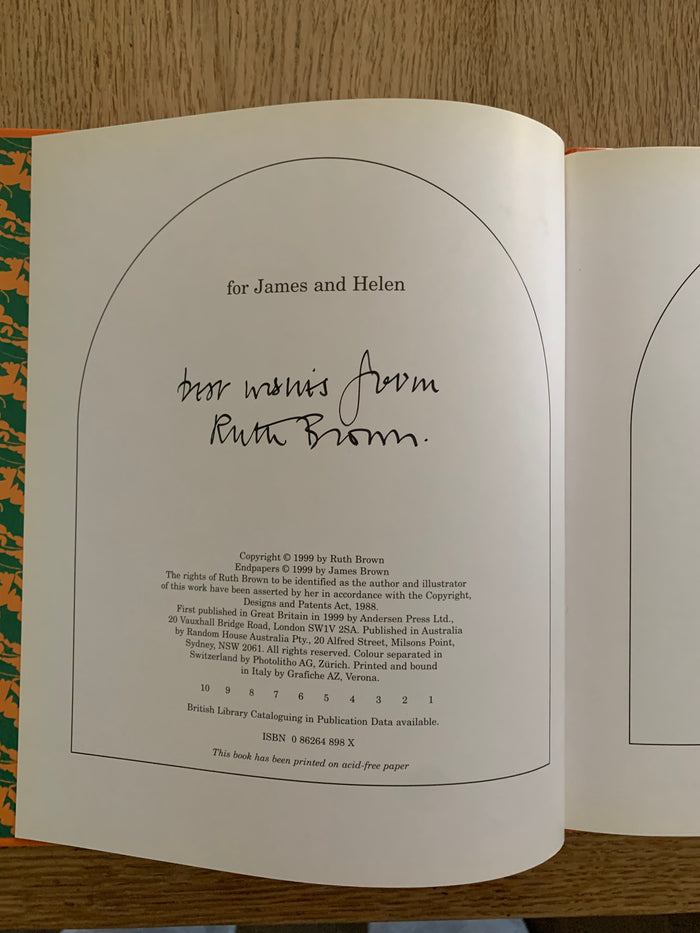 for James and Helen
best wishes from
Ruth Brown.
Copyright © 1999 by Ruth Brown
Endpapers © 1999 by James Brown
The rights of Ruth Brown to be identified as the author and illustrator
of this work have been asserted by her in accordance with the Copyright,
Designs and Patents Act, 1988.
First published in Great Britain in 1999 by Andersen Press Ltd.,
20 Vauxhall Bridge Road, London SW1V 2SA. Published in Australia
by Random House Australia Pty., 20 Alfred Street, Milsons Point,
Sydney, NSW 2061. All rights reserved. Colour separated in
Switzerland by Photolitho AG, Zürich. Printed and bound
in Italy by Grafiche AZ, Verona.
10 9 8 7 6 5 4 3 2 1
British Library Cataloguing in Publication Data available.
ISBN 0 86264 898 X
This book has been printed on acid-free paper